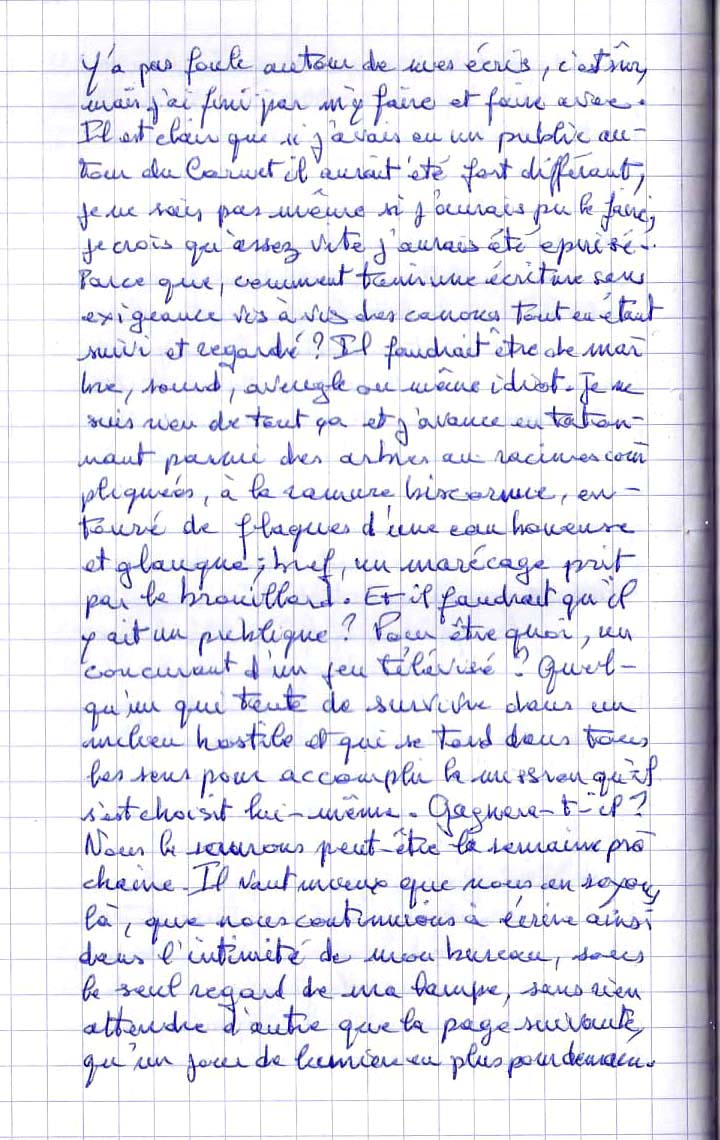 Y'a pas foule autour de mes écris, c'est sûr,
mais j'ai fini par m'y faire et faire avec.
Il est clair que si j'avais eu un public au-
tour du Carnet il aurait été fort différant,
je ne sais pas même si j'aurais pu le faire,
je crois qu'assez vite j'aurais été épuisé..
Parce que, comment tenir une écriture sans
exigeance vis à vis des canons tout en étant
suivi et regardé ? Il faudrait être de mar
bre, sourd, aveugle ou même idiot. Je ne
suis rien de tout ça et j'avance en taton-
nant parmi des arbres au racines com
pliquées, à la ramure biscornue, en-
touré de flaques d'une eau boueuse
et glauque ; bref, un marécage prit
par le brouillard. Et il faudrait qu'il
y ait un publique ? Pour être quoi, un
concurant d'un jeu télévisé ? Quel-
qu'un qui tente de survivre dans un
milieu hostile et qui se tord dans tous
les sens pour accomplir la mission qu'il
s'est choisit lui-même. Gagnera-t-il ?
Nous le saurons peut-être la semaine pro
chaine. Il vaut mieux que nous en soyons
là, que nous continuions à écrire ainsi
dans l'intimité de mon bureau, sous
le seul regard de ma lampe, sans rien
attendre d'autre que la page suivante,
qu'un jour de lumière en plus pour demain.